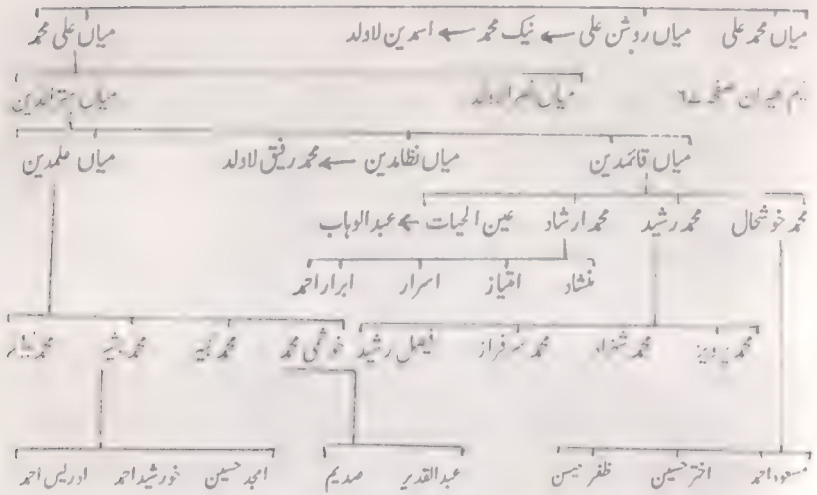 میاں محمد علی میاں روشن علی ← نیک محمد ← اسمدین لاولد میاں علی محمد
میراں صفحہ ۶۷ میاں لاولد میاں
میاں قائمدین میاں نظامدین ← محمد رفیق لاولد میاں علمدین
محمد خوشحال محمد رشید محمد ارشاد عین الحیات ← عبد الوہاب
منشاد امتیاز اسرار ابرار احمد
محمد پرویز محمد شہزاد محمد سرفراز فیصل رشید خوشی محمد محمد محمد بشیر محمد
مسعود احمد اختر حسین ظفر حسن عبد القدیر صدیم امجد حسین خورشید احمد ادریس احمد